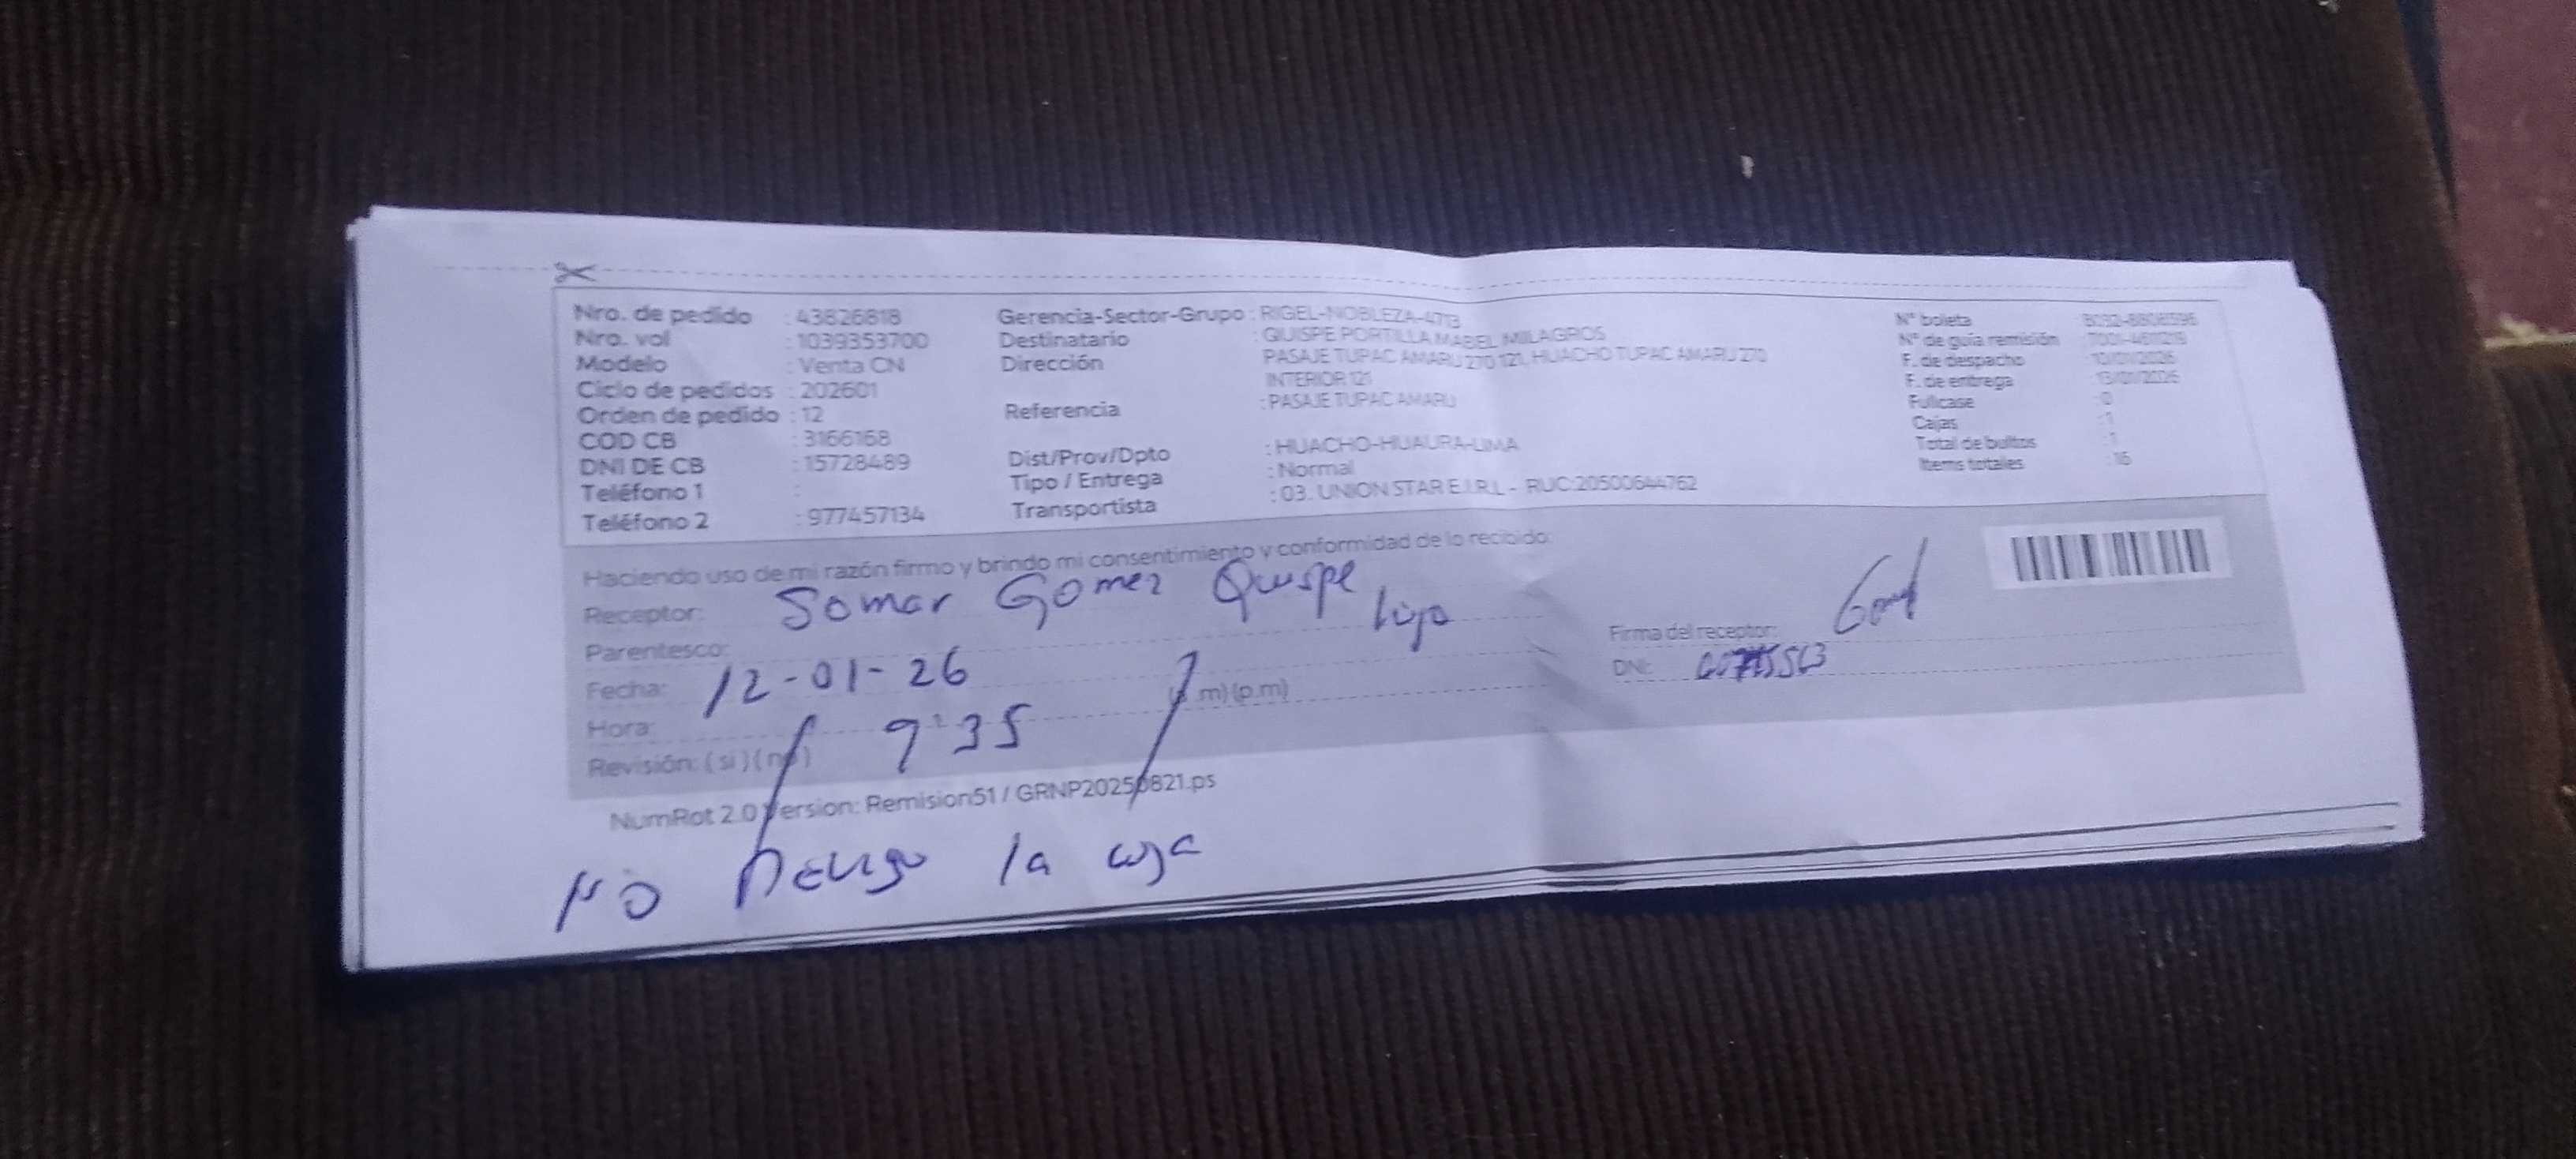 Nro. de pedido : 43826818
Nro. vol : 1039353700
Modelo : Venta CN
Ciclo de pedidos : 202601
Orden de pedido : 12
COD CB : 3166168
DNI DE CB : 15728489
Teléfono 1 :
Teléfono 2 : 977457134
Gerencia-Sector-Grupo : RIGEL-NOBLEZA-4713
Destinatario : QUISPE PORTILLA MABEL MILAGROS
Dirección PASAJE TUPAC AMARU 270 121, HUACHO TUPAC AMARU 270
INTERIOR 121
Referencia : PASAJE TUPAC AMARU
Dist/Prov/Dpto : HUACHO-HUAURA-LIMA
Tipo / Entrega : Normal
Transportista : 03. UNION STAR E.I.R.L - RUC:20500644762
N° boleta
N° de guía remisión
F. de despacho : 10/01/2026
F. de entrega : 13/01/2026
Fullcase : 0
Cajas : 1
Total de bultos : 1
Items totales : 16
Haciendo uso de mi razón firmo y brindo mi consentimiento y conformidad de lo recibido:
Receptor: Somar Gomez Quispe
Parentesco: hijo
Fecha: 12-01-26
Hora: 9:35 (a.m) (p.m)
Revisión: (si) (no)
Firma del receptor:
DNI:
NumRot 2.0 Version: Remision51 / GRNP20250821.ps
NO la caja